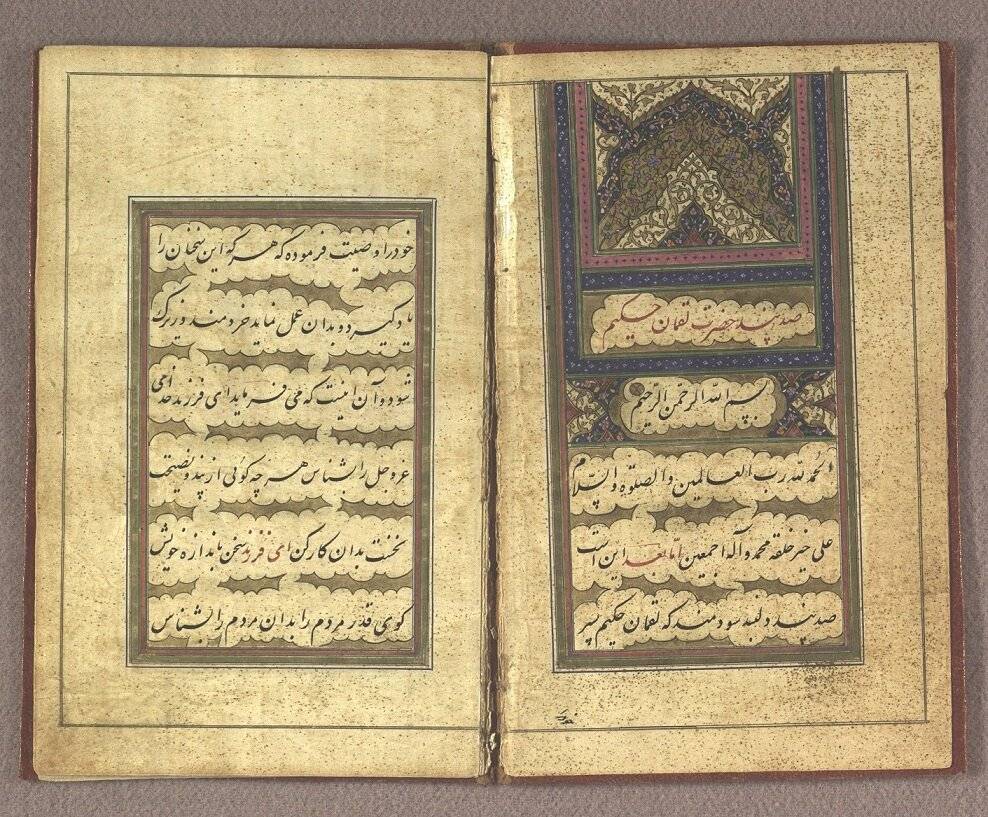 صد پند حضرت لقمان حکیم
بسم الله الرحمن الرحیم
الحمد لله رب العالمین والصلوة والسلام
علی خیر خلقه محمد وآله اجمعین اما بعد این است
صد پند دلبند سودمند که لقمان حکیم پسر
خود را وصیت فرموده که هر که این سخنان را
یاد گیرد و بدان عمل نماید خردمند و زیرک
شود و آن اینست که می فرماید ای فرزند خدای
عز و جل را بشناس هر چه گوئی از پند و نصیحت
نخست بدان کار کن ای فرزند سخن باندازه خویش
گوی قدر مردم را بدان مردم را بشناس